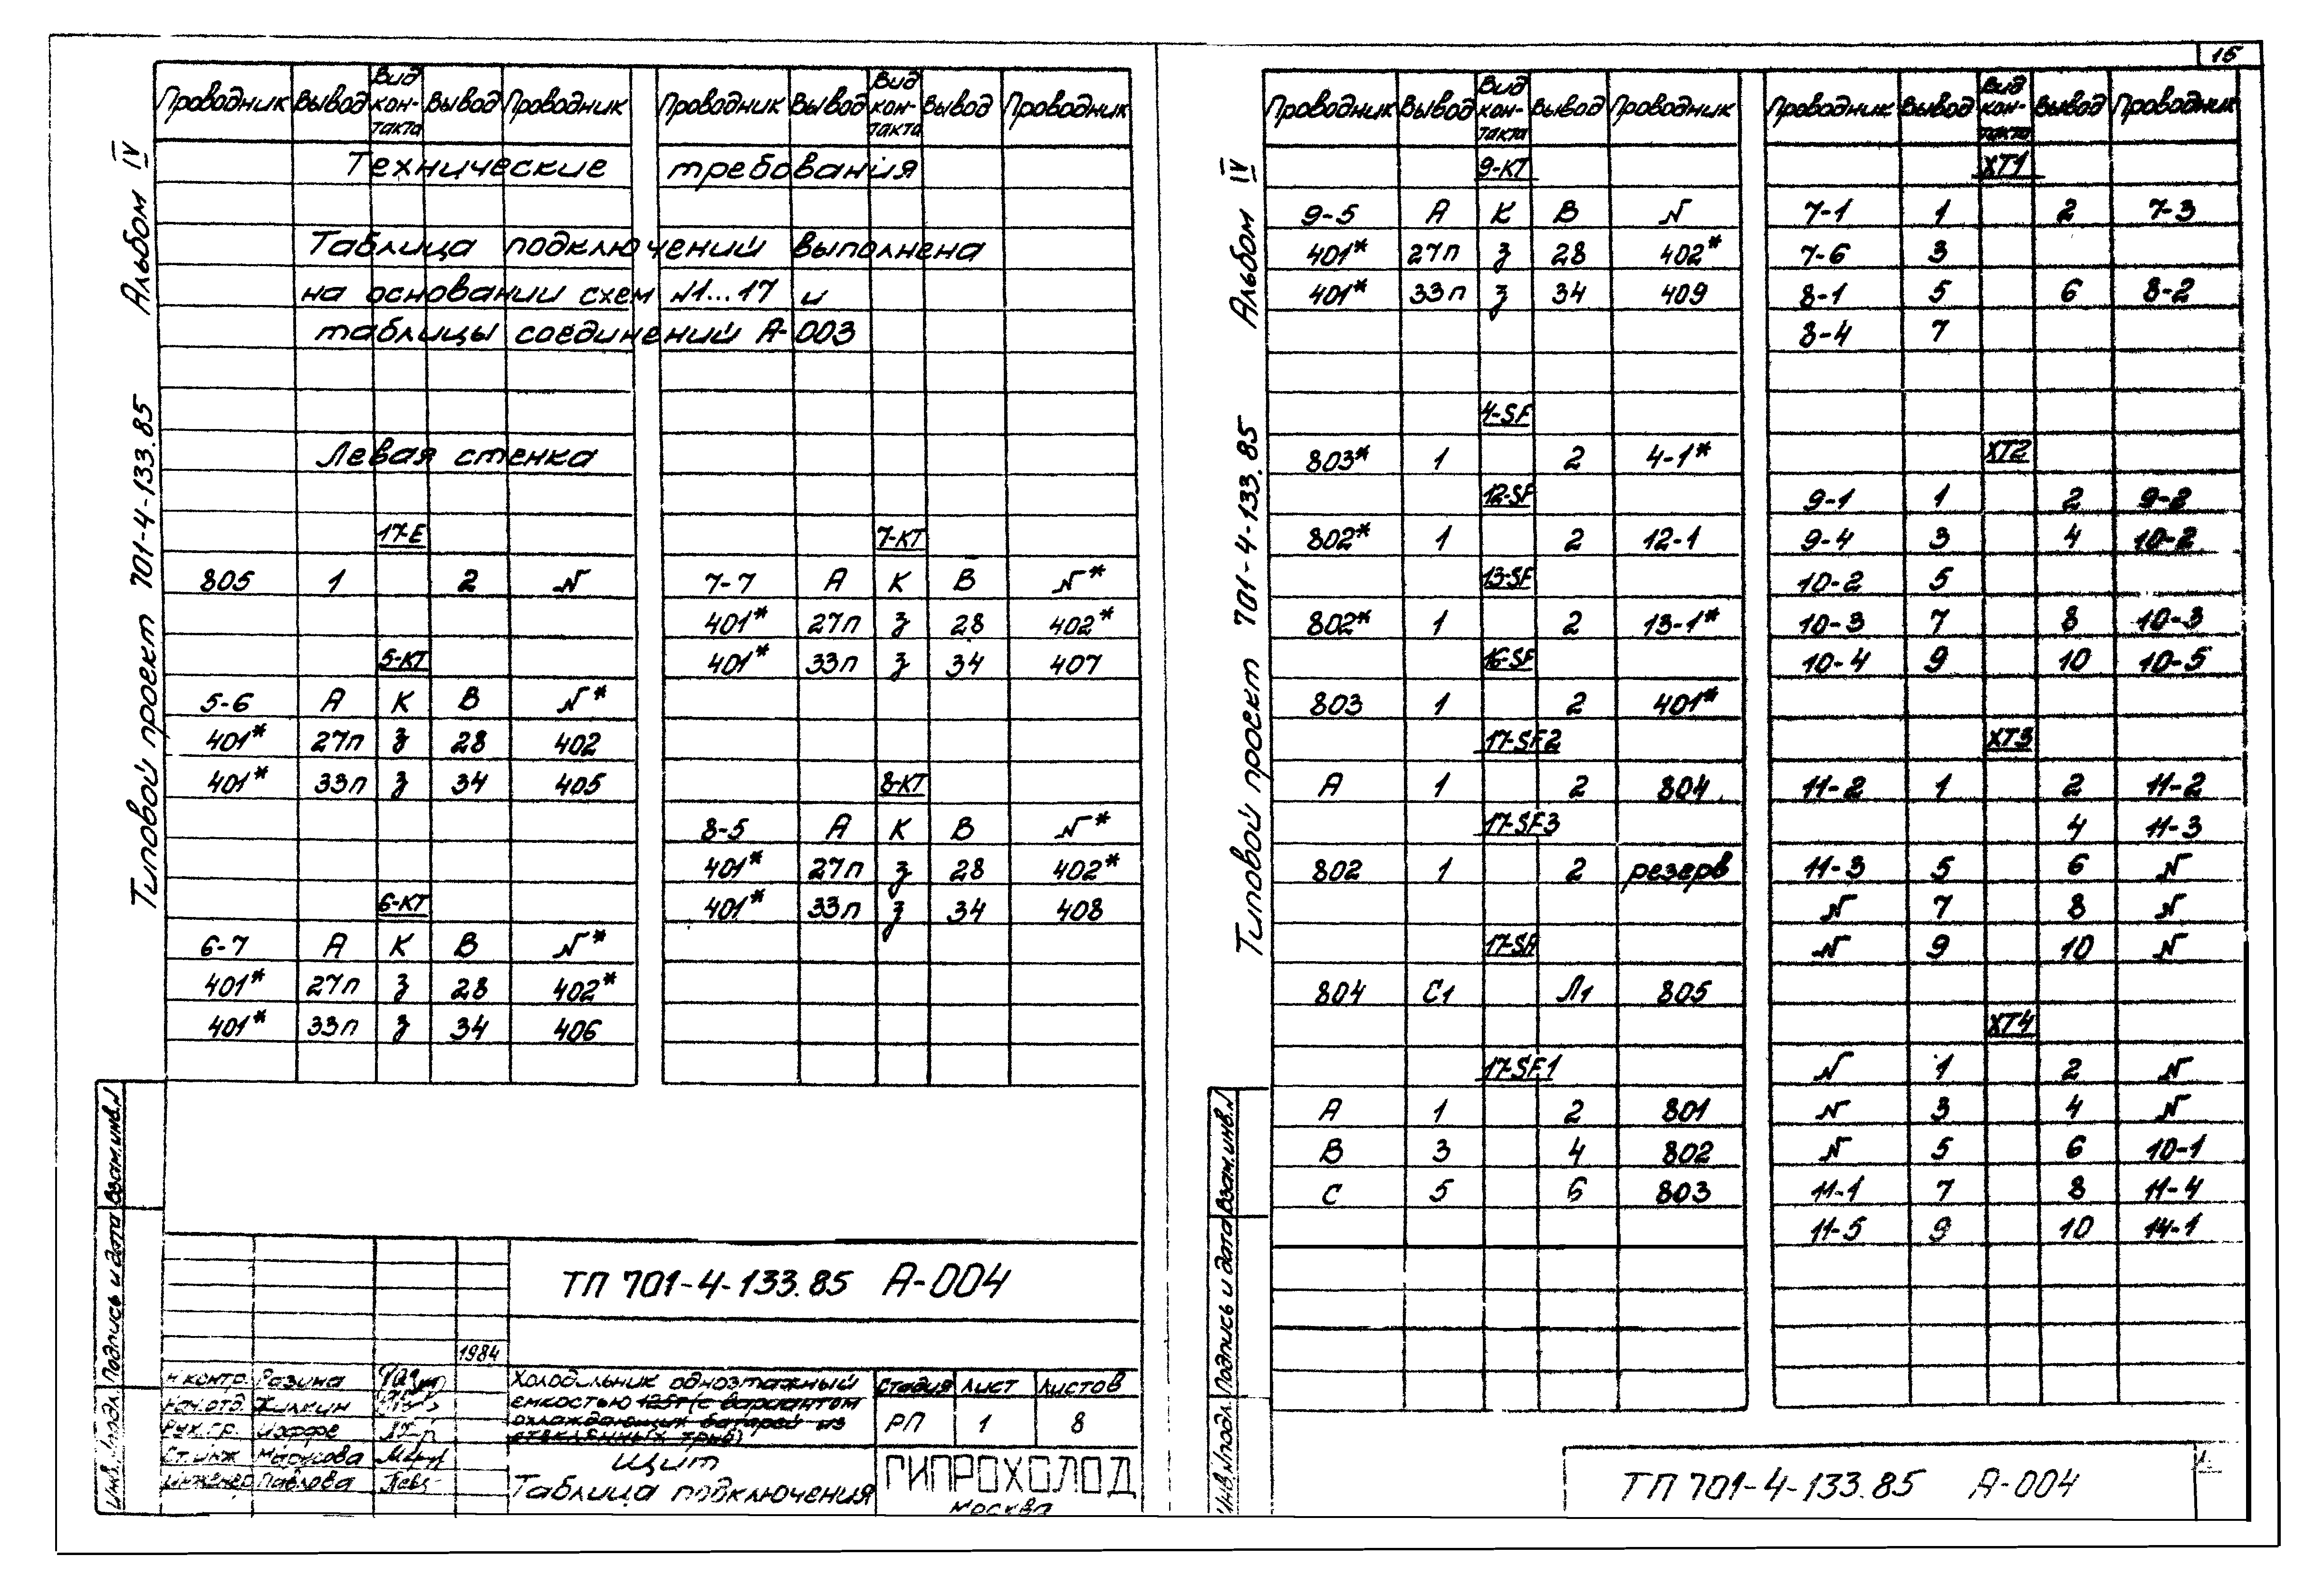 15
Альбом IV
Типовой проект 701-4-133.85
Проводник Вывод Вид кон-такта Вывод Проводник Проводник Вывод Вид кон-такта Вывод Проводник
Технические требования
Таблица подключений выполнена
на основании схем N1...17 и
таблицы соединений А-003
Левая стенка
17-Е
805 1 2 N
5-КТ
5-6 А К В N*
401* 27п з 28 402
401* 33п з 34 405
6-КТ
6-7 А К В N*
401* 27п з 28 402*
401* 33п з 34 406
7-КТ
7-7 А К В N*
401* 27п з 28 402*
401* 33п з 34 407
8-КТ
8-5 А К В N*
401* 27п з 28 402*
401* 33п з 34 408
Инв.N подл. Подпись и дата Взам.инв.N
ТП 701-4-133.85 А-004
1984
Н.контр. Разина
Нач.отд. Жилкин
Рук.гр. Иоффе
Ст.инж. Марусова
Инженер Павлова
Холодильник одноэтажный
емкостью 125т (с вариантом
охлаждающих батарей из
стеклянных труб)
Щит
Таблица подключения
Стадия Лист Листов
РП 1 8
ГИПРОХОЛОД
Москва
Альбом IV
Типовой проект 701-4-133.85
Проводник Вывод Вид кон-такта Вывод Проводник Проводник Вывод Вид кон-такта Вывод Проводник
9-КТ
9-5 А К В N
401* 27п з 28 402*
401* 33п з 34 409
4-SF
803* 1 2 4-1*
12-SF
802* 1 2 12-1
13-SF
802* 1 2 13-1*
16-SF
803 1 2 401*
17-SF2
А 1 2 804
17-SF3
802 1 2 резерв
17-SA
804 С1 Л1 805
17-SF1
А 1 2 801
В 3 4 802
С 5 6 803
XT1
7-1 1 2 7-3
7-6 3
8-1 5 6 8-2
8-4 7
XT2
9-1 1 2 9-2
9-4 3 4 10-2
10-2 5
10-3 7 8 10-3
10-4 9 10 10-5
XT3
11-2 1 2 11-2
4 11-3
11-3 5 6 N
N 7 8 N
N 9 10 N
XT4
N 1 2 N
N 3 4 N
N 5 6 10-1
11-1 7 8 11-4
11-5 9 10 14-1
Инв.N подл. Подпись и дата Взам.инв.N
ТП 701-4-133.85 А-004